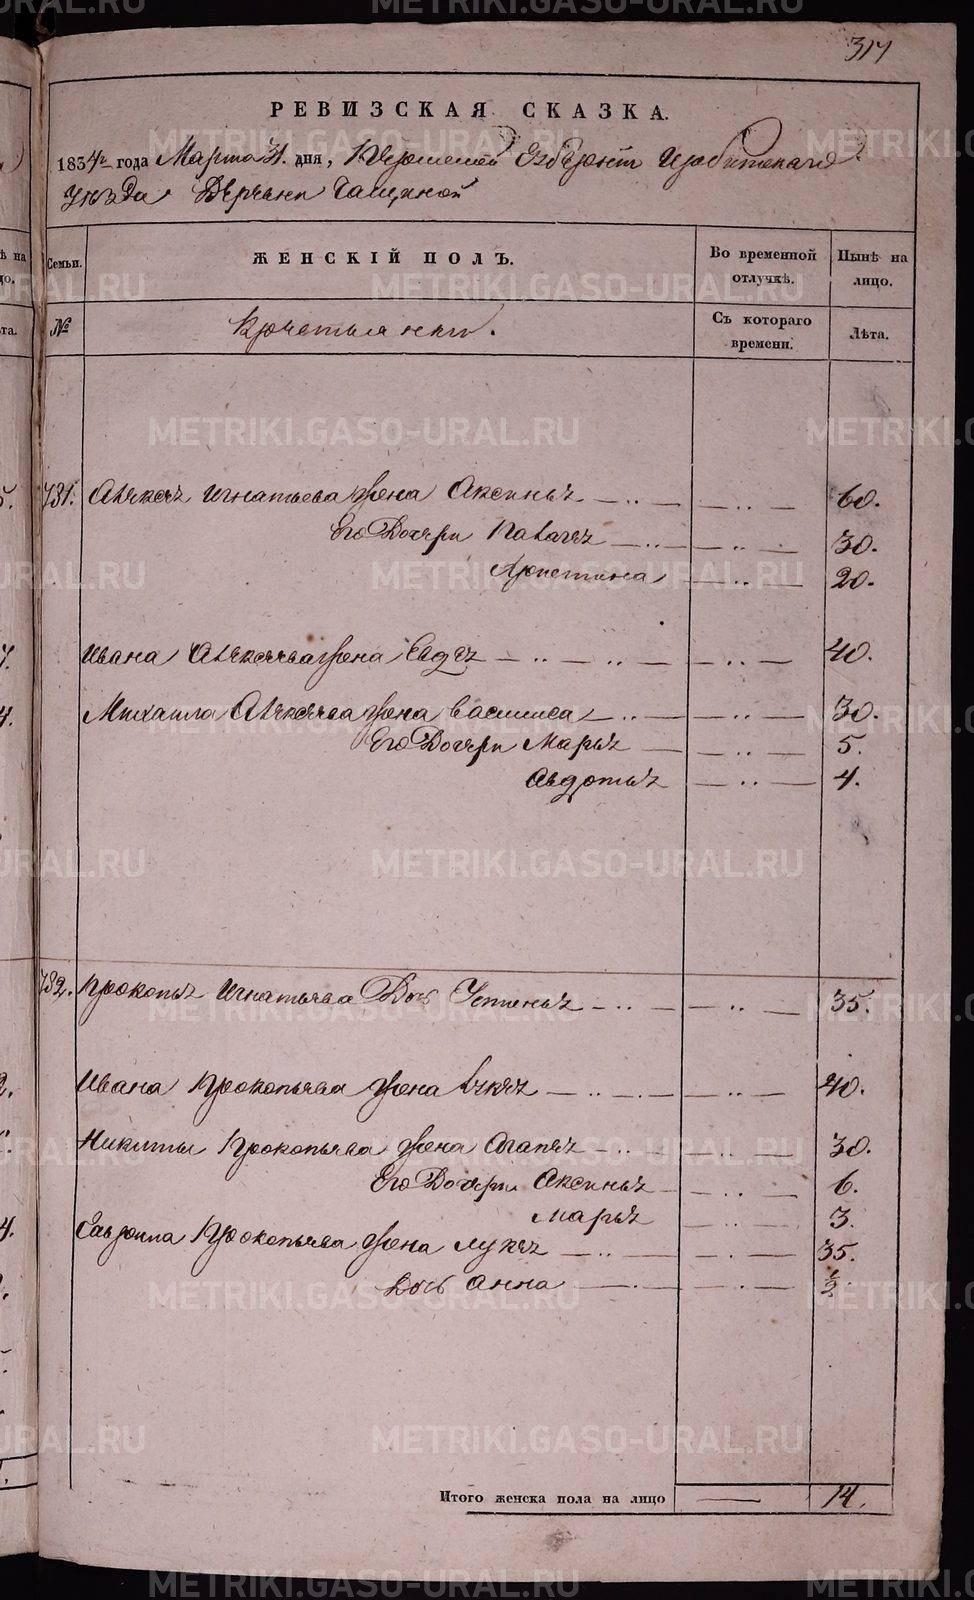 317
РЕВИЗСКАЯ СКАЗКА.
1834 года Марта 31. дня, Пермской Губерніи Ирбитскаго
Уѣзда
№ Семьи.
ЖЕНСКІЙ ПОЛЪ.
Во временной отлучкѣ.
Нынѣ на лицо.
Крестьянки.
Съ котораго времени.
Лѣта.
731. Алексѣя Игнатьева жена Аксинья — .. — — .. — 60.
Его Дочери Палагѣя — .. — — .. — 30.
— .. — 20.
Ивана Алексѣева жена — .. — .. — — .. — 40.
Михаила Алексѣева жена Василиса — .. — — .. — 30.
Его Дочери Марья — — .. — 5.
Авдотья — .. — 4.
732. Прокопья Игнатьева Дочь Устинья — .. — — .. — 35.
Ивана Прокопьева жена — .. — . — — .. — 40.
Никиты Прокопьева жена Агапья — .. — — .. — 30.
Его Дочери Аксинья — — .. — 6.
Марья — .. — 3.
Гаврила Прокопьева жена Лукья — .. — — .. — 35.
Дочь Анна — . — — .. — ½.
Итого женска пола на лицо — 14.
METRIKI.GASO-URAL.RU